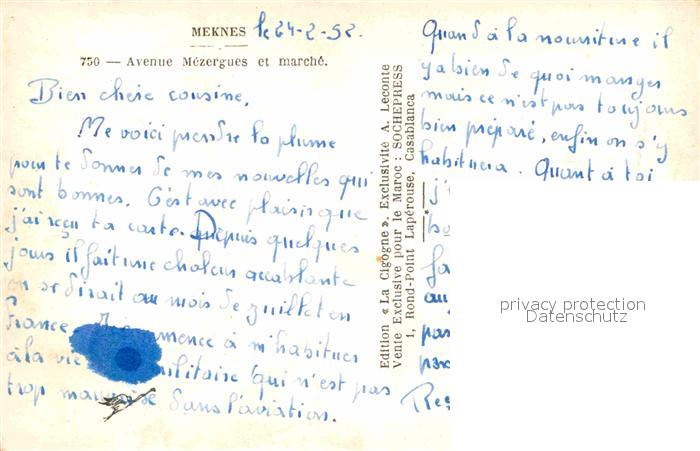 MEKNES le 24-2-52.
750 — Avenue Mézergues et marché.
Bien chère cousine,
Me voici prendre la plume
pour te donner de mes nouvelles qui
sont bonnes. C'est avec plaisir que
j'ai reçu ta carte. Depuis quelques
jours il fait une chaleur accablante
on se dirait au mois de juillet en
France. Je commence à m'habituer
à la vie militaire qui n'est pas
trop mauvaise dans l'aviation.
Edition « La Cigogne ». Exclusivité A. Leconte
Vente Exclusive pour le Maroc : SOCHEPRESS
1, Rond-Point Lapérouse, Casablanca
Quand à la nourriture il
y a bien de quoi manger
mais ce n'est pas toujours
bien préparé, enfin on s'y
habituera. Quant à toi
j'
fa
au
pas
privacy protection
Datenschutz